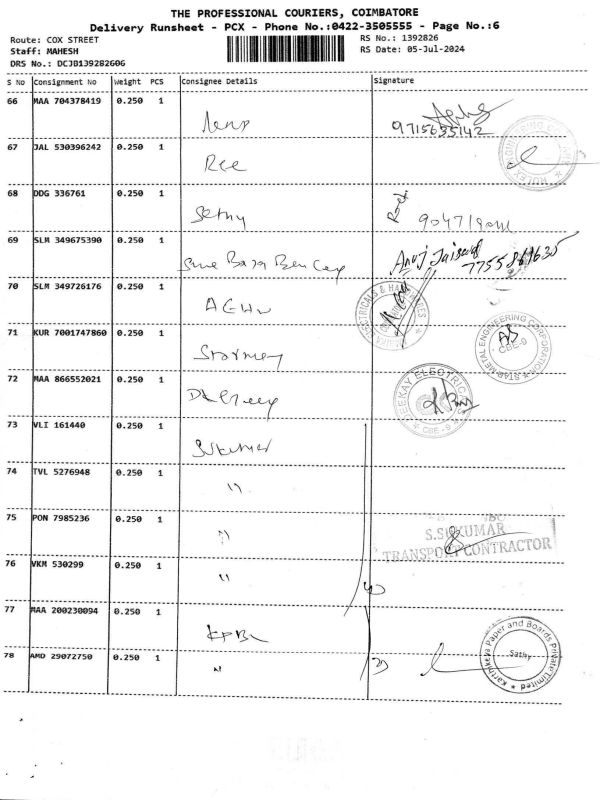 THE PROFESSIONAL COURIERS, COIMBATORE
Delivery Runsheet - PCX - Phone No.:0422-3505555 - Page No.:6
Route: COX STREET
RS No.: 1392826
Staff: MAHESH
RS Date: 05-Jul-2024
DRS No.: DCJB139282606
S No Consignment No Weight PCS Consignee Details Signature
66 MAA 704378419 0.250 1
9715635142
67 JAL 530396242 0.250 1 Ree
68 DDG 336761 0.250 1 Sethy
69 SLM 349675390 0.250 1
Anuj Jaiswal
70 SLM 349726176 0.250 1
ELECTRICALS & HARDWARES
71 KUR 7001747860 0.250 1
STAR METAL ENGINEERING CORPORATION
CBE-9
72 MAA 866552021 0.250 1
SEEKAY ELECTRICALS
CBE-9
73 VLI 161440 0.250 1 S.Sukumar
74 TVL 5276948 0.250 1 "
75 PON 7985236 0.250 1 "
S.SUKUMAR
TRANSPORT CONTRACTOR
76 VKM 530299 0.250 1 "
77 MAA 200230094 0.250 1 KPBL
78 AMD 29072750 0.250 1 "
Karthikeya Paper and Boards Private Limited
Sathy